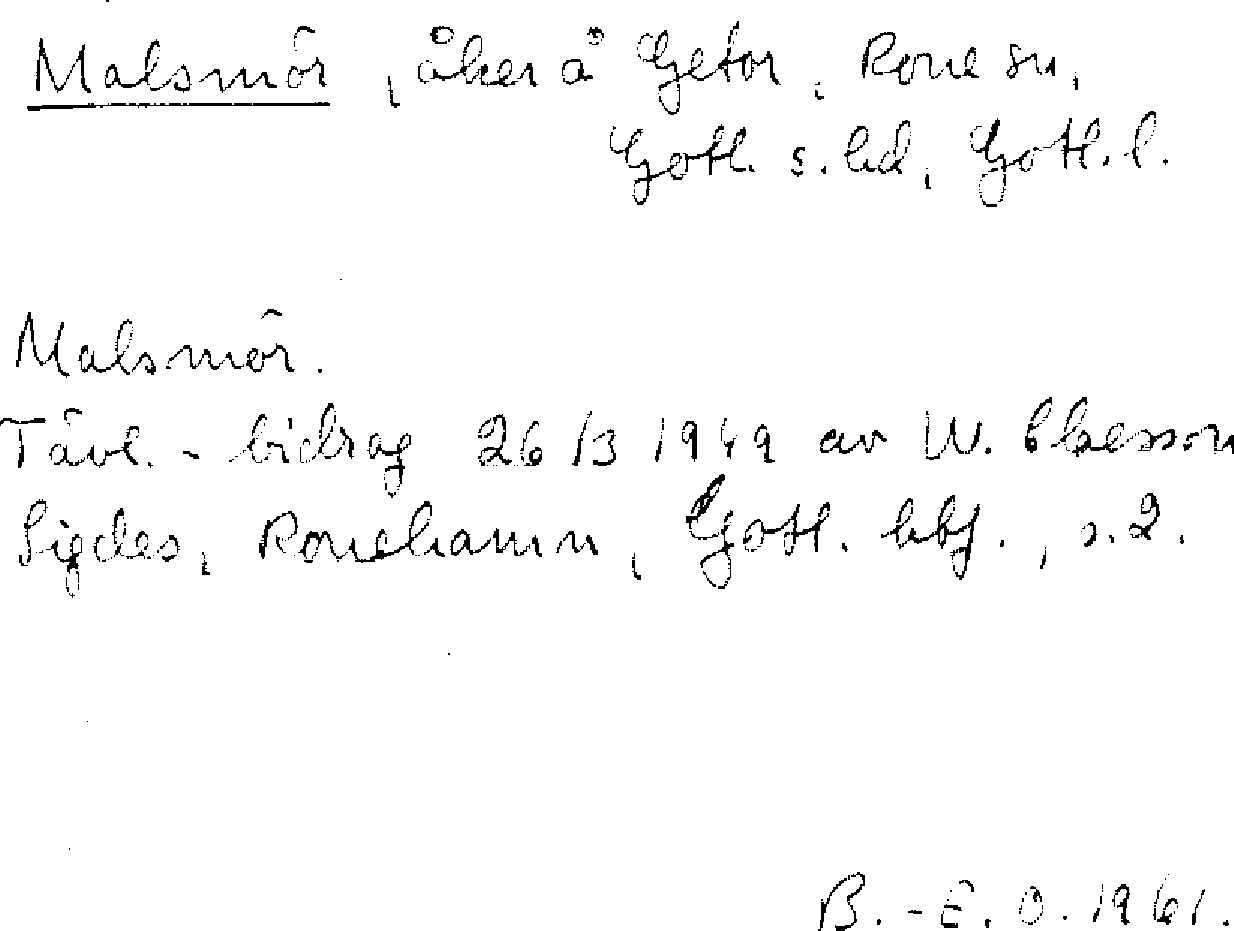 Malsmör, åker å Getor, Rone sn,
Gotl. s. hd, Gotl. l.
Malsmör.
Tävl. - bidrag 26/3 1949 av W.
Sigdes, Ronehamn, Gotl. hbf., s. 2.
B. - E. O. 1961.